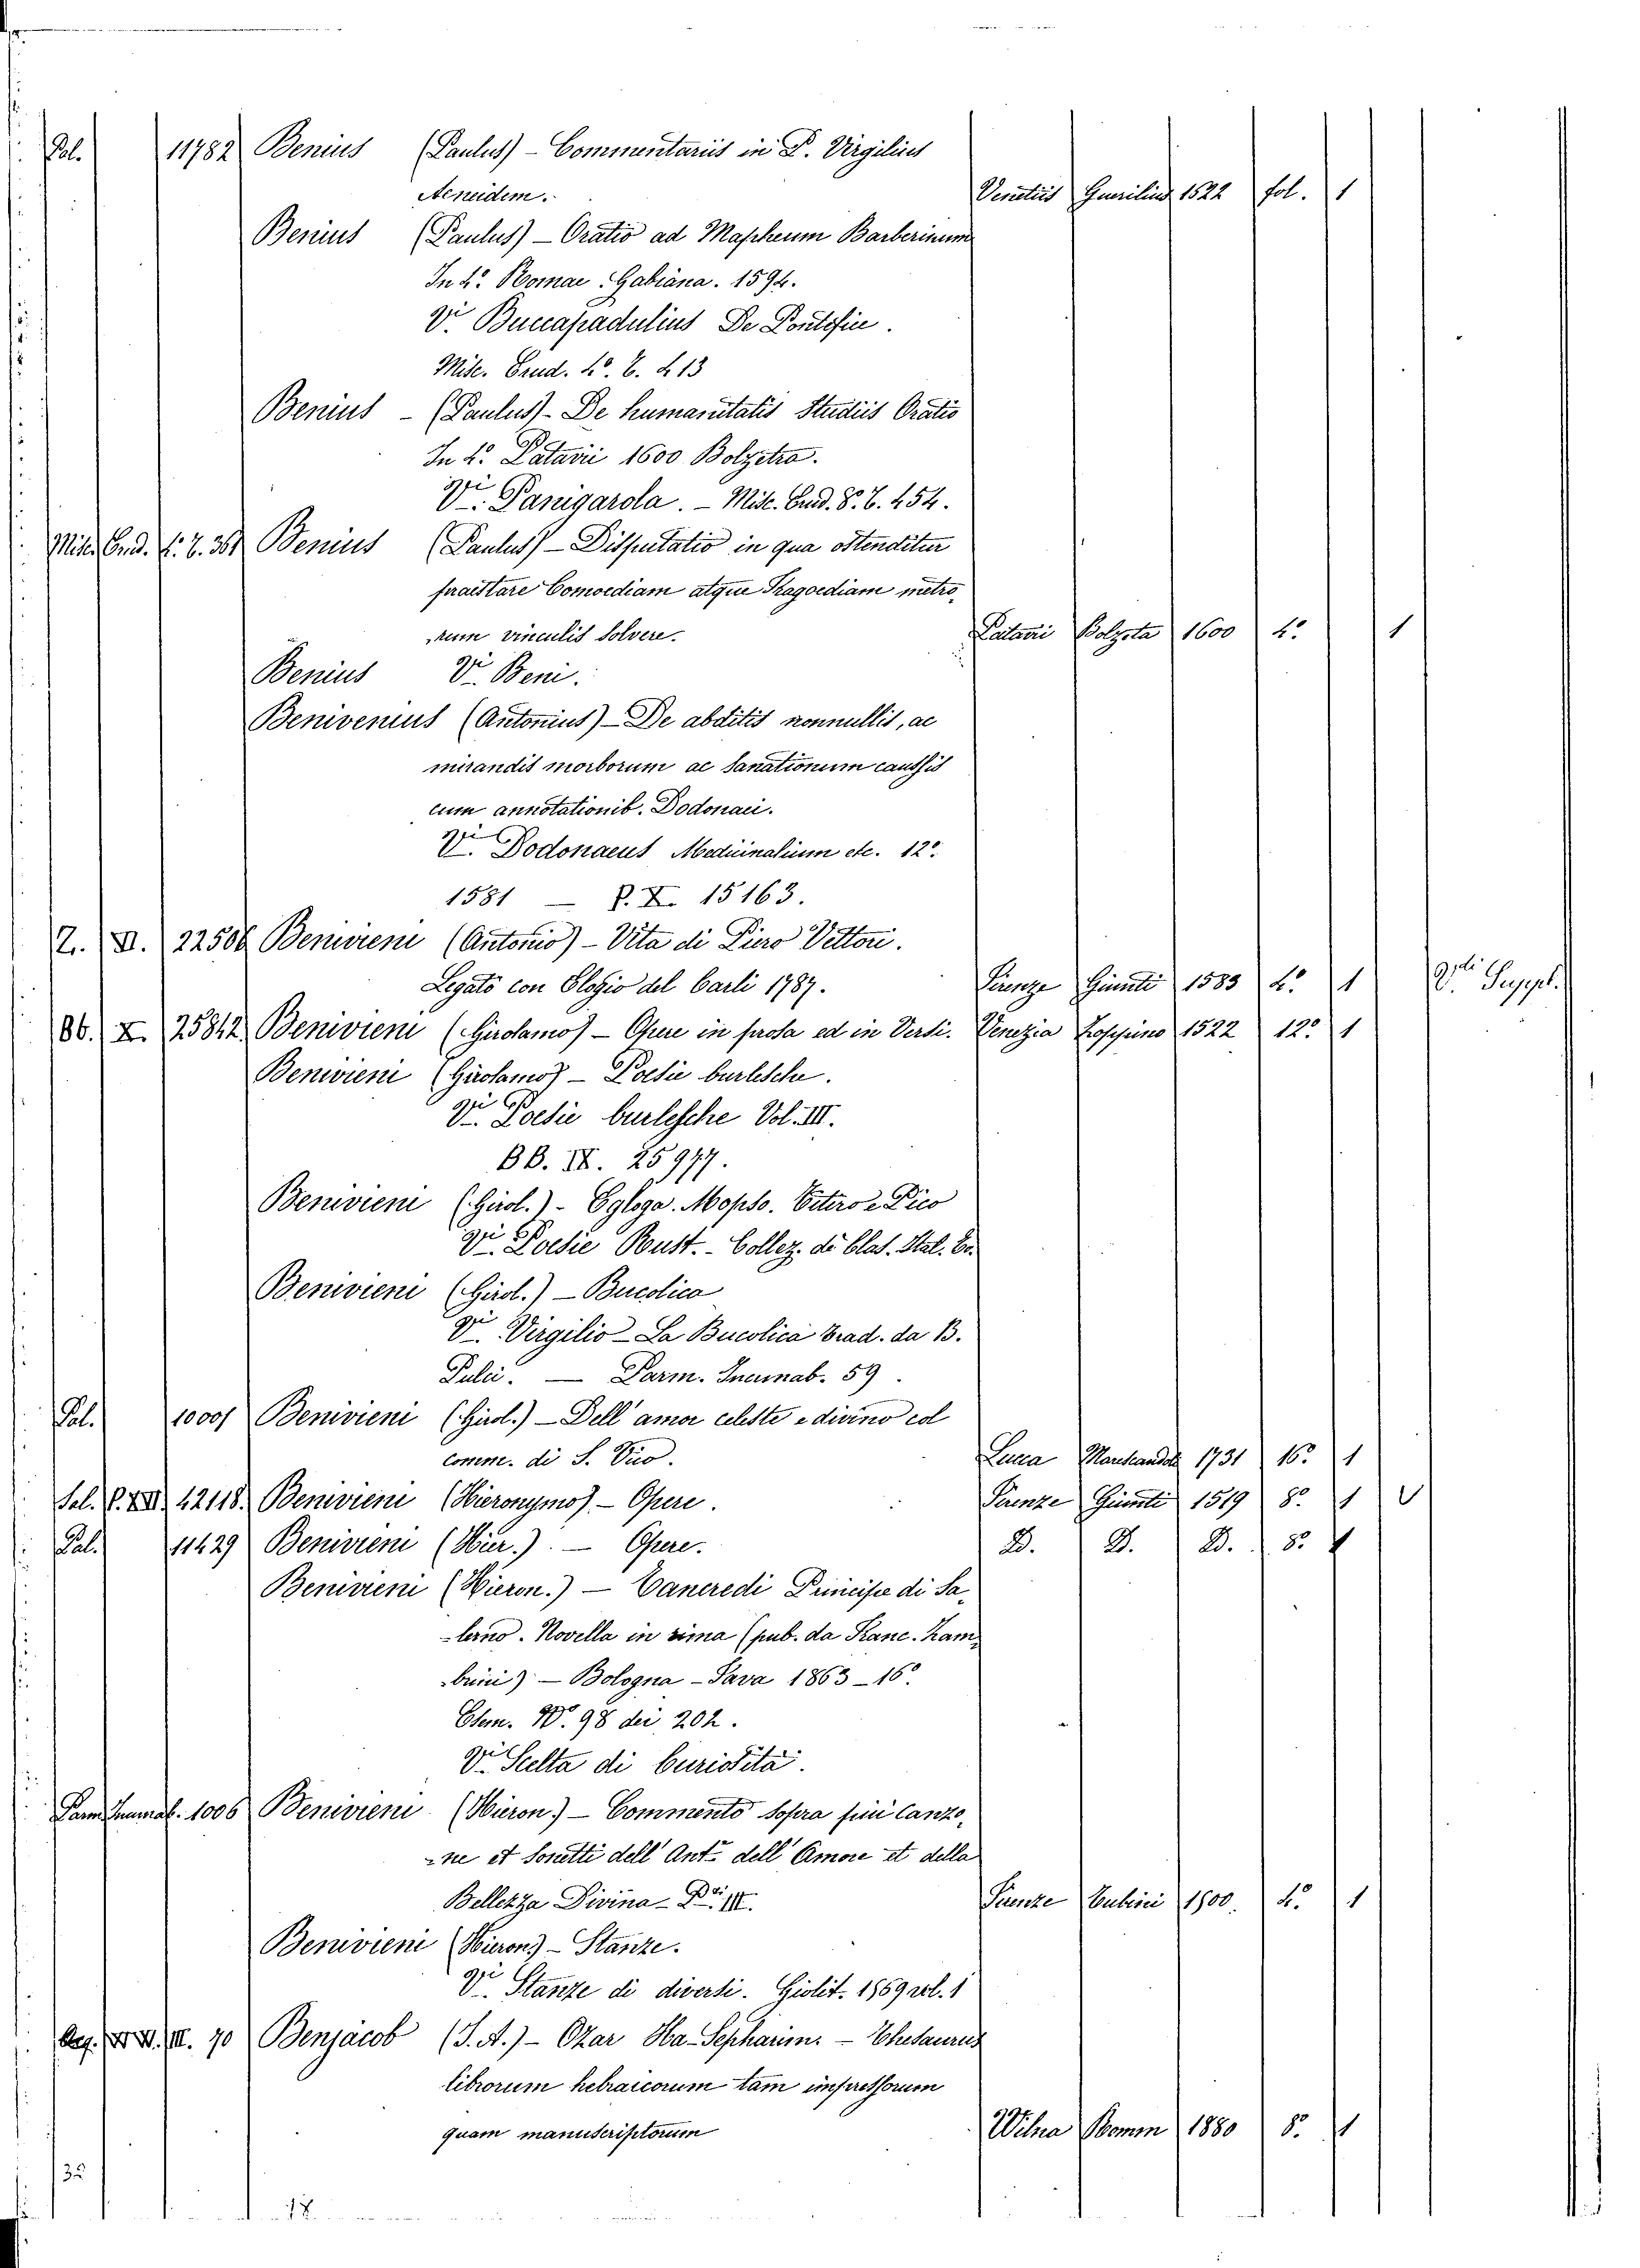 Pal. 11782 Benius (Paulus) - Commentariis in P. Virgilius
Aeneidem. Venetiis Guerilius 1622 fol. 1
Benius (Paulus) - Oratio ad Mapheum Barberinum
In 4º. Romae. Gabiana. 1594.
Vi. Buccapadulius De Pontifice.
Misc. Erud. 4º. T. 413
Benius - (Paulus) - De humanitatis Studiis Oratio
In 4º. Patavii 1600 Bolzetra.
Vi. Panigarola. - Misc. Erud. 8º. T. 454.
Misc. Erud. 4º. T. 361 Benius (Paulus) - Disputatio in qua ostenditur
praestare Comoediam atque Tragoediam metro-
rum vinculis solvere. Patavii Bolzeta 1600 4º 1
Benius Vi. Beni.
Benivenius (Antonius) - De abditis nonnullis, ac
mirandis morborum ac sanationum caussis
cum annotationib. Dodonaei.
Vi. Dodonaeus Medicinalium etc. 12º.
1581 - P. X. 15163.
Z. II. 22506 Benivieni (Antonio) - Vita di Piero Vettori.
Legato con Elogio del Carli 1787. Firenze Giunti 1583 4º 1 Vi. Suppl.
BB. X. 25812 Benivieni (Girolamo) - Opere in prosa ed in Versi. Venezia Zoppino 1522 12º. 1
Benivieni (Girolamo) - Poesie burlesche.
Vi. Poesie burlesche Vol. III.
BB. IX. 25977.
Benivieni (Girol.) - Egloga. Mopso. Titiro e Pico
Vi. Poesie Rust. - Collez. di Clas. Ital. Ec.
Benivieni (Girol.) - Bucolica
Vi. Virgilio - La Bucolica trad. da B.
Pulci. - Parm. Incunab. 59.
Pal. 10001 Benivieni (Girol.) - Dell' amor celeste e divino col
comm. di S. Vico. Lucca Marescandoli 1731 16º 1
Sel. P. XII. 42118. Benivieni (Hieronymo) - Opere. Firenze Giunti 1519 8º. 1 V
Pal. 11429 Benivieni (Hier.). - Opere. D. D. D. 8º 1
Benivieni (Hieron.) - Tancredi Principe di Sa-
-lerno. Novella in rima (pub. da Franc. Zam-
-brini) - Bologna - Fava 1863 - 16º.
Esem. Nº. 98 dei 202.
Vi. Scelta di Curiosità.
Parm. Incunab. 1006 Benivieni (Hieron.) - Commento sopra più Canzo-
-ne et Sonetti dell' Ant.e dell' Amore et della
Bellezza Divina - Pti. III. Firenze Tubini 1500. 4º. 1
Benivieni (Hieron.) - Stanze.
Vi. Stanze di diversi. Giolit. 1569 vol. 1
70 Benjacob (I. A.) - Ozar Ha-Sepharim. - Thesaurus
librorum hebraicorum tam impressorum
quam manuscriptorum Wilna Romm 1880 8º. 1
35